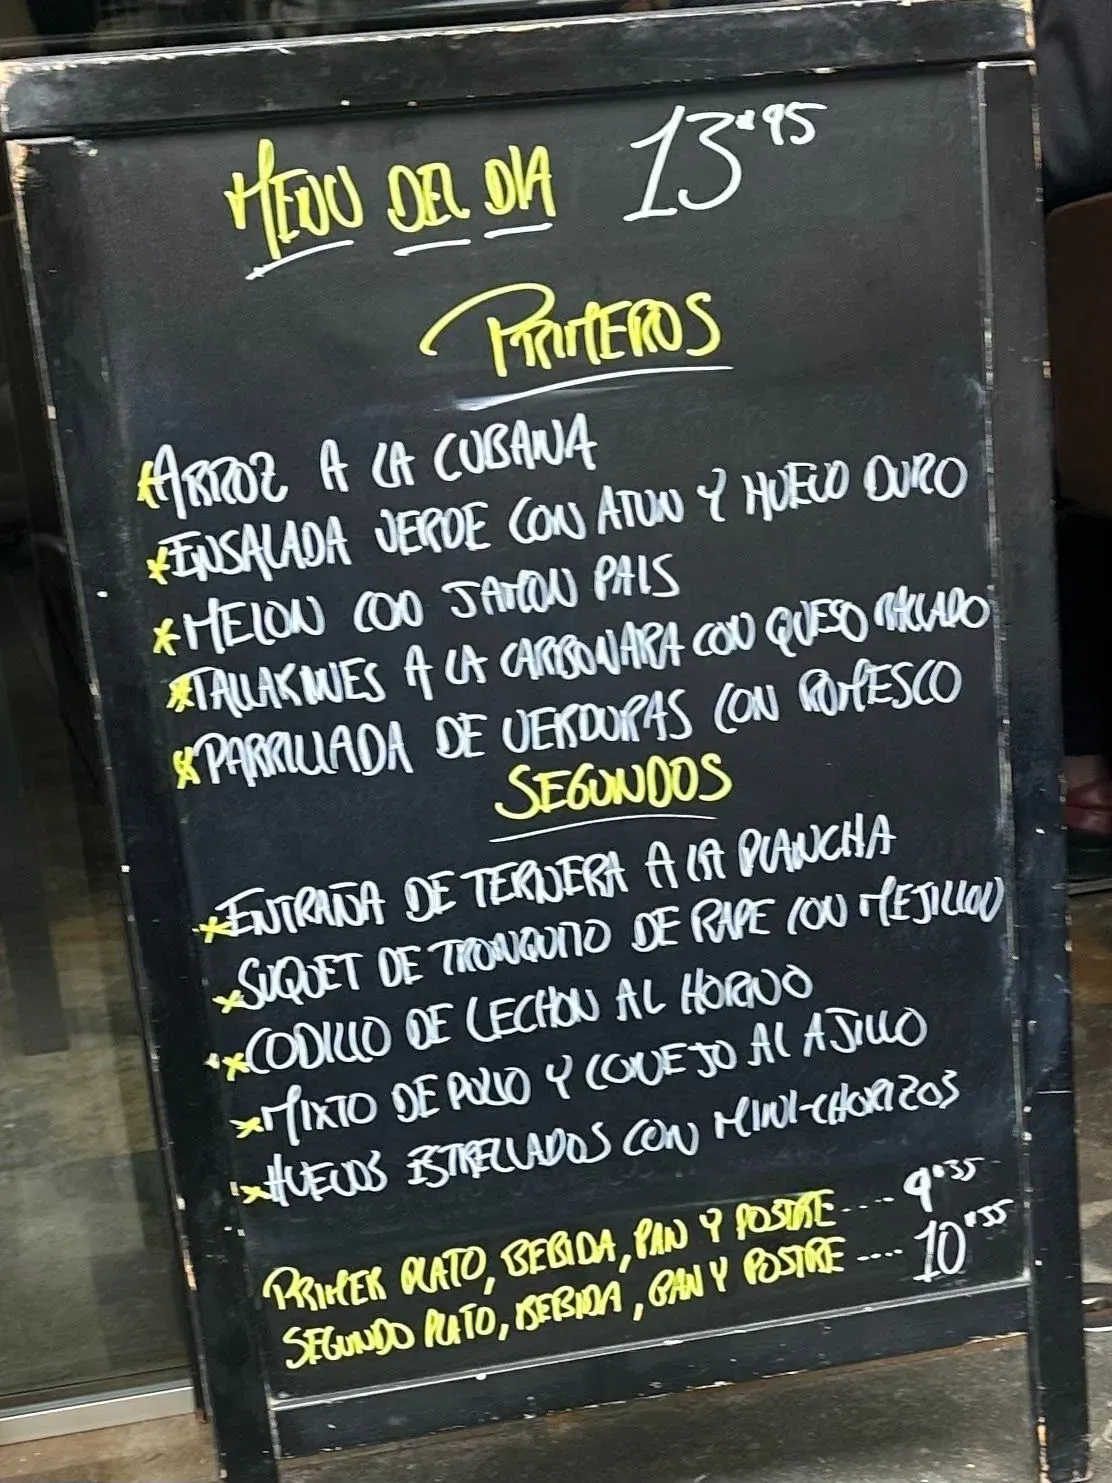 MENU DEL DIA 13'95
PRIMEROS
*ARROZ A LA CUBANA
*ENSALADA VERDE CON ATUN Y HUEVO DURO
*MELON CON JAMON PAIS
*TALLARINES A LA CARBONARA CON QUESO RALLADO
*PARRILLADA DE VERDURAS CON ROMESCO
SEGUNDOS
*ENTRAÑA DE TERNERA A LA PLANCHA
*SUQUET DE TRONQUITO DE RAPE CON MEJILLON
*CODILLO DE LECHON AL HORNO
*MIXTO DE POLLO Y CONEJO AL AJILLO
*HUEVOS ESTRELLADOS CON MINI-CHORIZOS
PRIMER PLATO, BEBIDA, PAN Y POSTRE .... 9'55
SEGUNDO PLATO, BEBIDA, PAN Y POSTRE .... 10'55